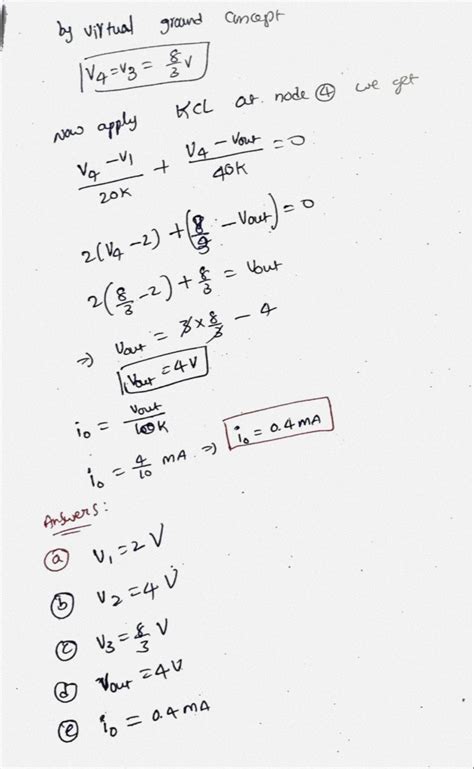 by virtual ground concept
V4 = V3 = 8/3 V
Now apply KCL at node ④ we get
(V4 - V1)/20K + (V4 - Vout)/40K = 0
2(V4 - 2) + (8/3 - Vout) = 0
2(8/3 - 2) + 8/3 = Vout
⇒ Vout = 3 × 8/3 - 4
Vout = 4V
io = Vout/10K
io = 4/10 mA ⇒ io = 0.4 mA
Answers:
ⓐ V1 = 2 V
ⓑ V2 = 4 V
ⓒ V3 = 8/3 V
ⓓ Vout = 4V
ⓔ io = 0.4 mA